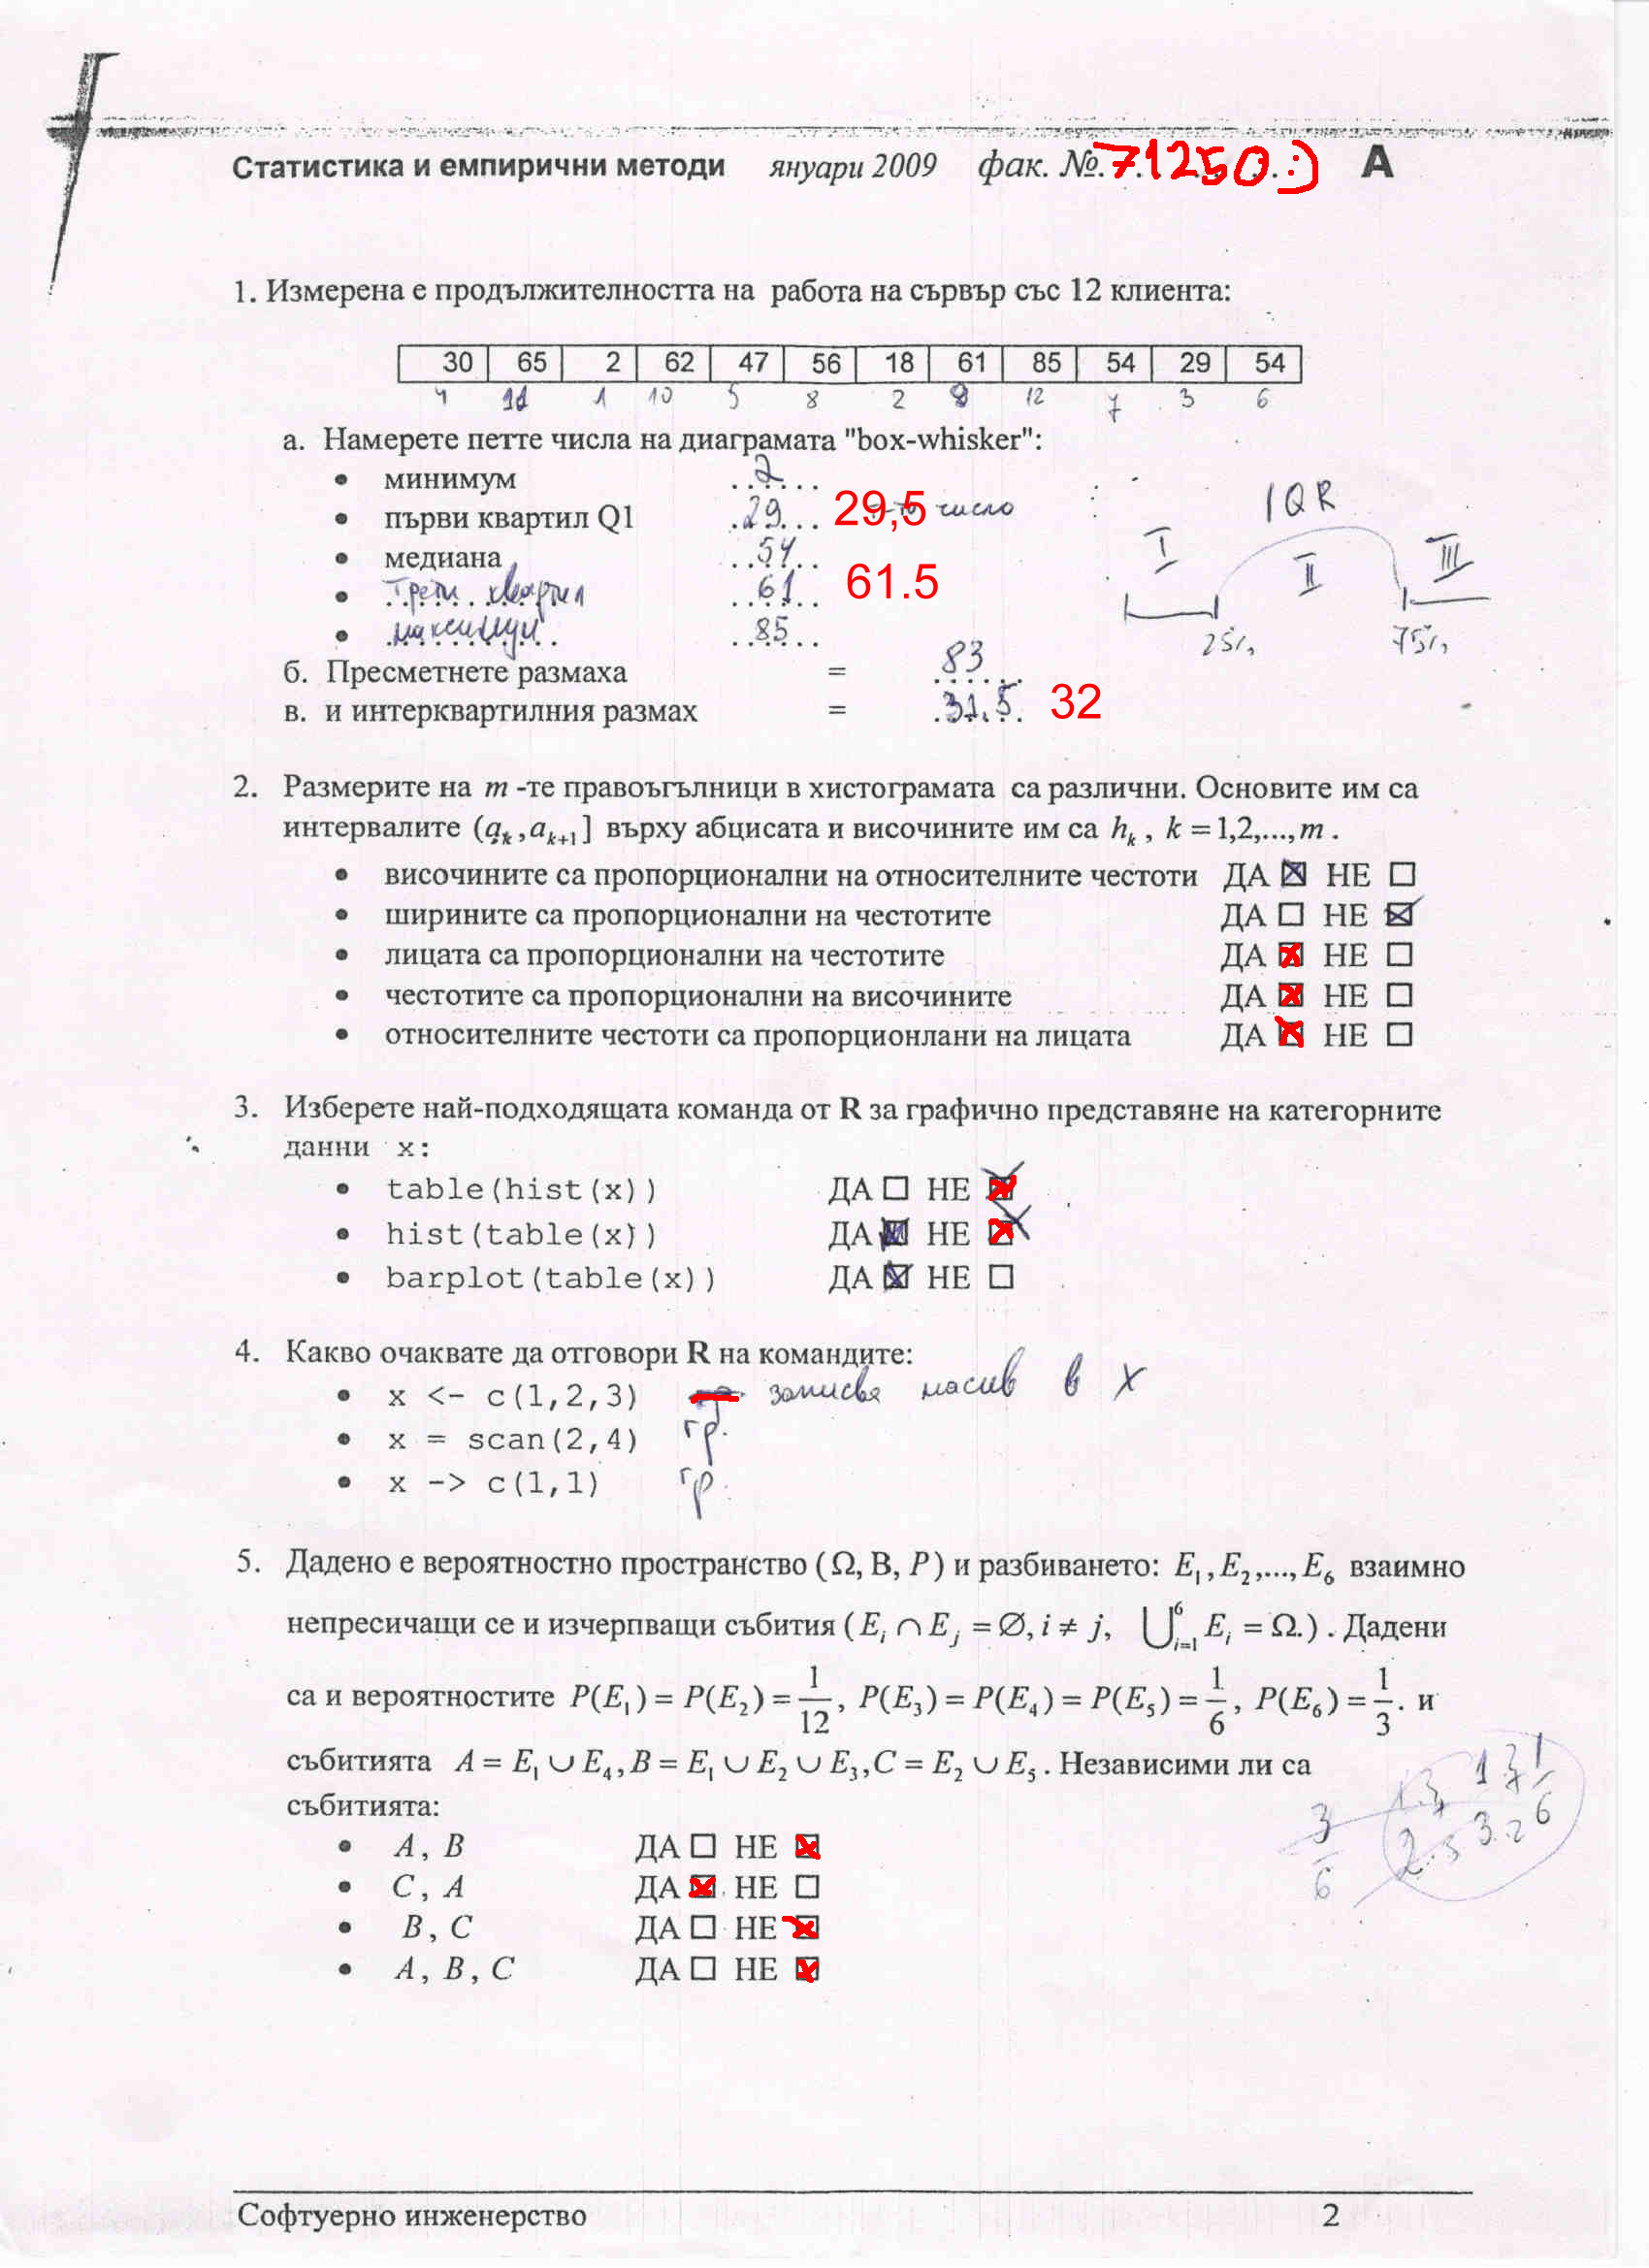 Статистика и емпирични методи януари 2009 фак. №.71250 :) А
1. Измерена е продължителността на работа на сървър със 12 клиента:
30 65 2 62 47 56 18 61 85 54 29 54
4 11 1 10 5 8 2 9 12 7 3 6
а. Намерете петте числа на диаграмата "box-whisker":
• минимум 2
• първи квартил Q1 29 29,5 число
• медиана 54
• трети квартил 61 61.5
• максимум 85
IQR
I II III
25% 75%
б. Пресметнете размаха = 83
в. и интерквартилния размах = 31.5 32
2. Размерите на m -те правоъгълници в хистограмата са различни. Основите им са
интервалите (aₖ,aₖ₊₁] върху абцисата и височините им са hₖ , k = 1,2,...,m .
• височините са пропорционални на относителните честоти ДА ☒ НЕ ☐
• ширините са пропорционални на честотите ДА ☐ НЕ ☒
• лицата са пропорционални на честотите ДА ☒ НЕ ☐
• честотите са пропорционални на височините ДА ☒ НЕ ☐
• относителните честоти са пропорционлани на лицата ДА ☒ НЕ ☐
3. Изберете най-подходящата команда от R за графично представяне на категорните
данни x:
• table(hist(x)) ДА ☐ НЕ ☒
• hist(table(x)) ДА ☒ НЕ ☒
• barplot(table(x)) ДА ☒ НЕ ☐
4. Какво очаквате да отговори R на командите:
• x <- c(1,2,3) записва масив в x
• x = scan(2,4) гр.
• x -> c(1,1) гр.
5. Дадено е вероятностно пространство (Ω, B, P) и разбиването: E₁,E₂,...,E₆ взаимно
непресичащи се и изчерпващи събития (Eᵢ ∩ Eⱼ = ∅, i ≠ j, ⋃⁶ᵢ₌₁ Eᵢ = Ω.) . Дадени
са и вероятностите P(E₁) = P(E₂) = 1/12, P(E₃) = P(E₄) = P(E₅) = 1/6, P(E₆) = 1/3. и
събитията A = E₁ ∪ E₄, B = E₁ ∪ E₂ ∪ E₃, C = E₂ ∪ E₅. Независими ли са
събитията:
• A, B ДА ☐ НЕ ☒
• C, A ДА ☒ НЕ ☐
• B, C ДА ☐ НЕ ☒
• A, B, C ДА ☐ НЕ ☒
3/6
Софтуерно инженерство 2